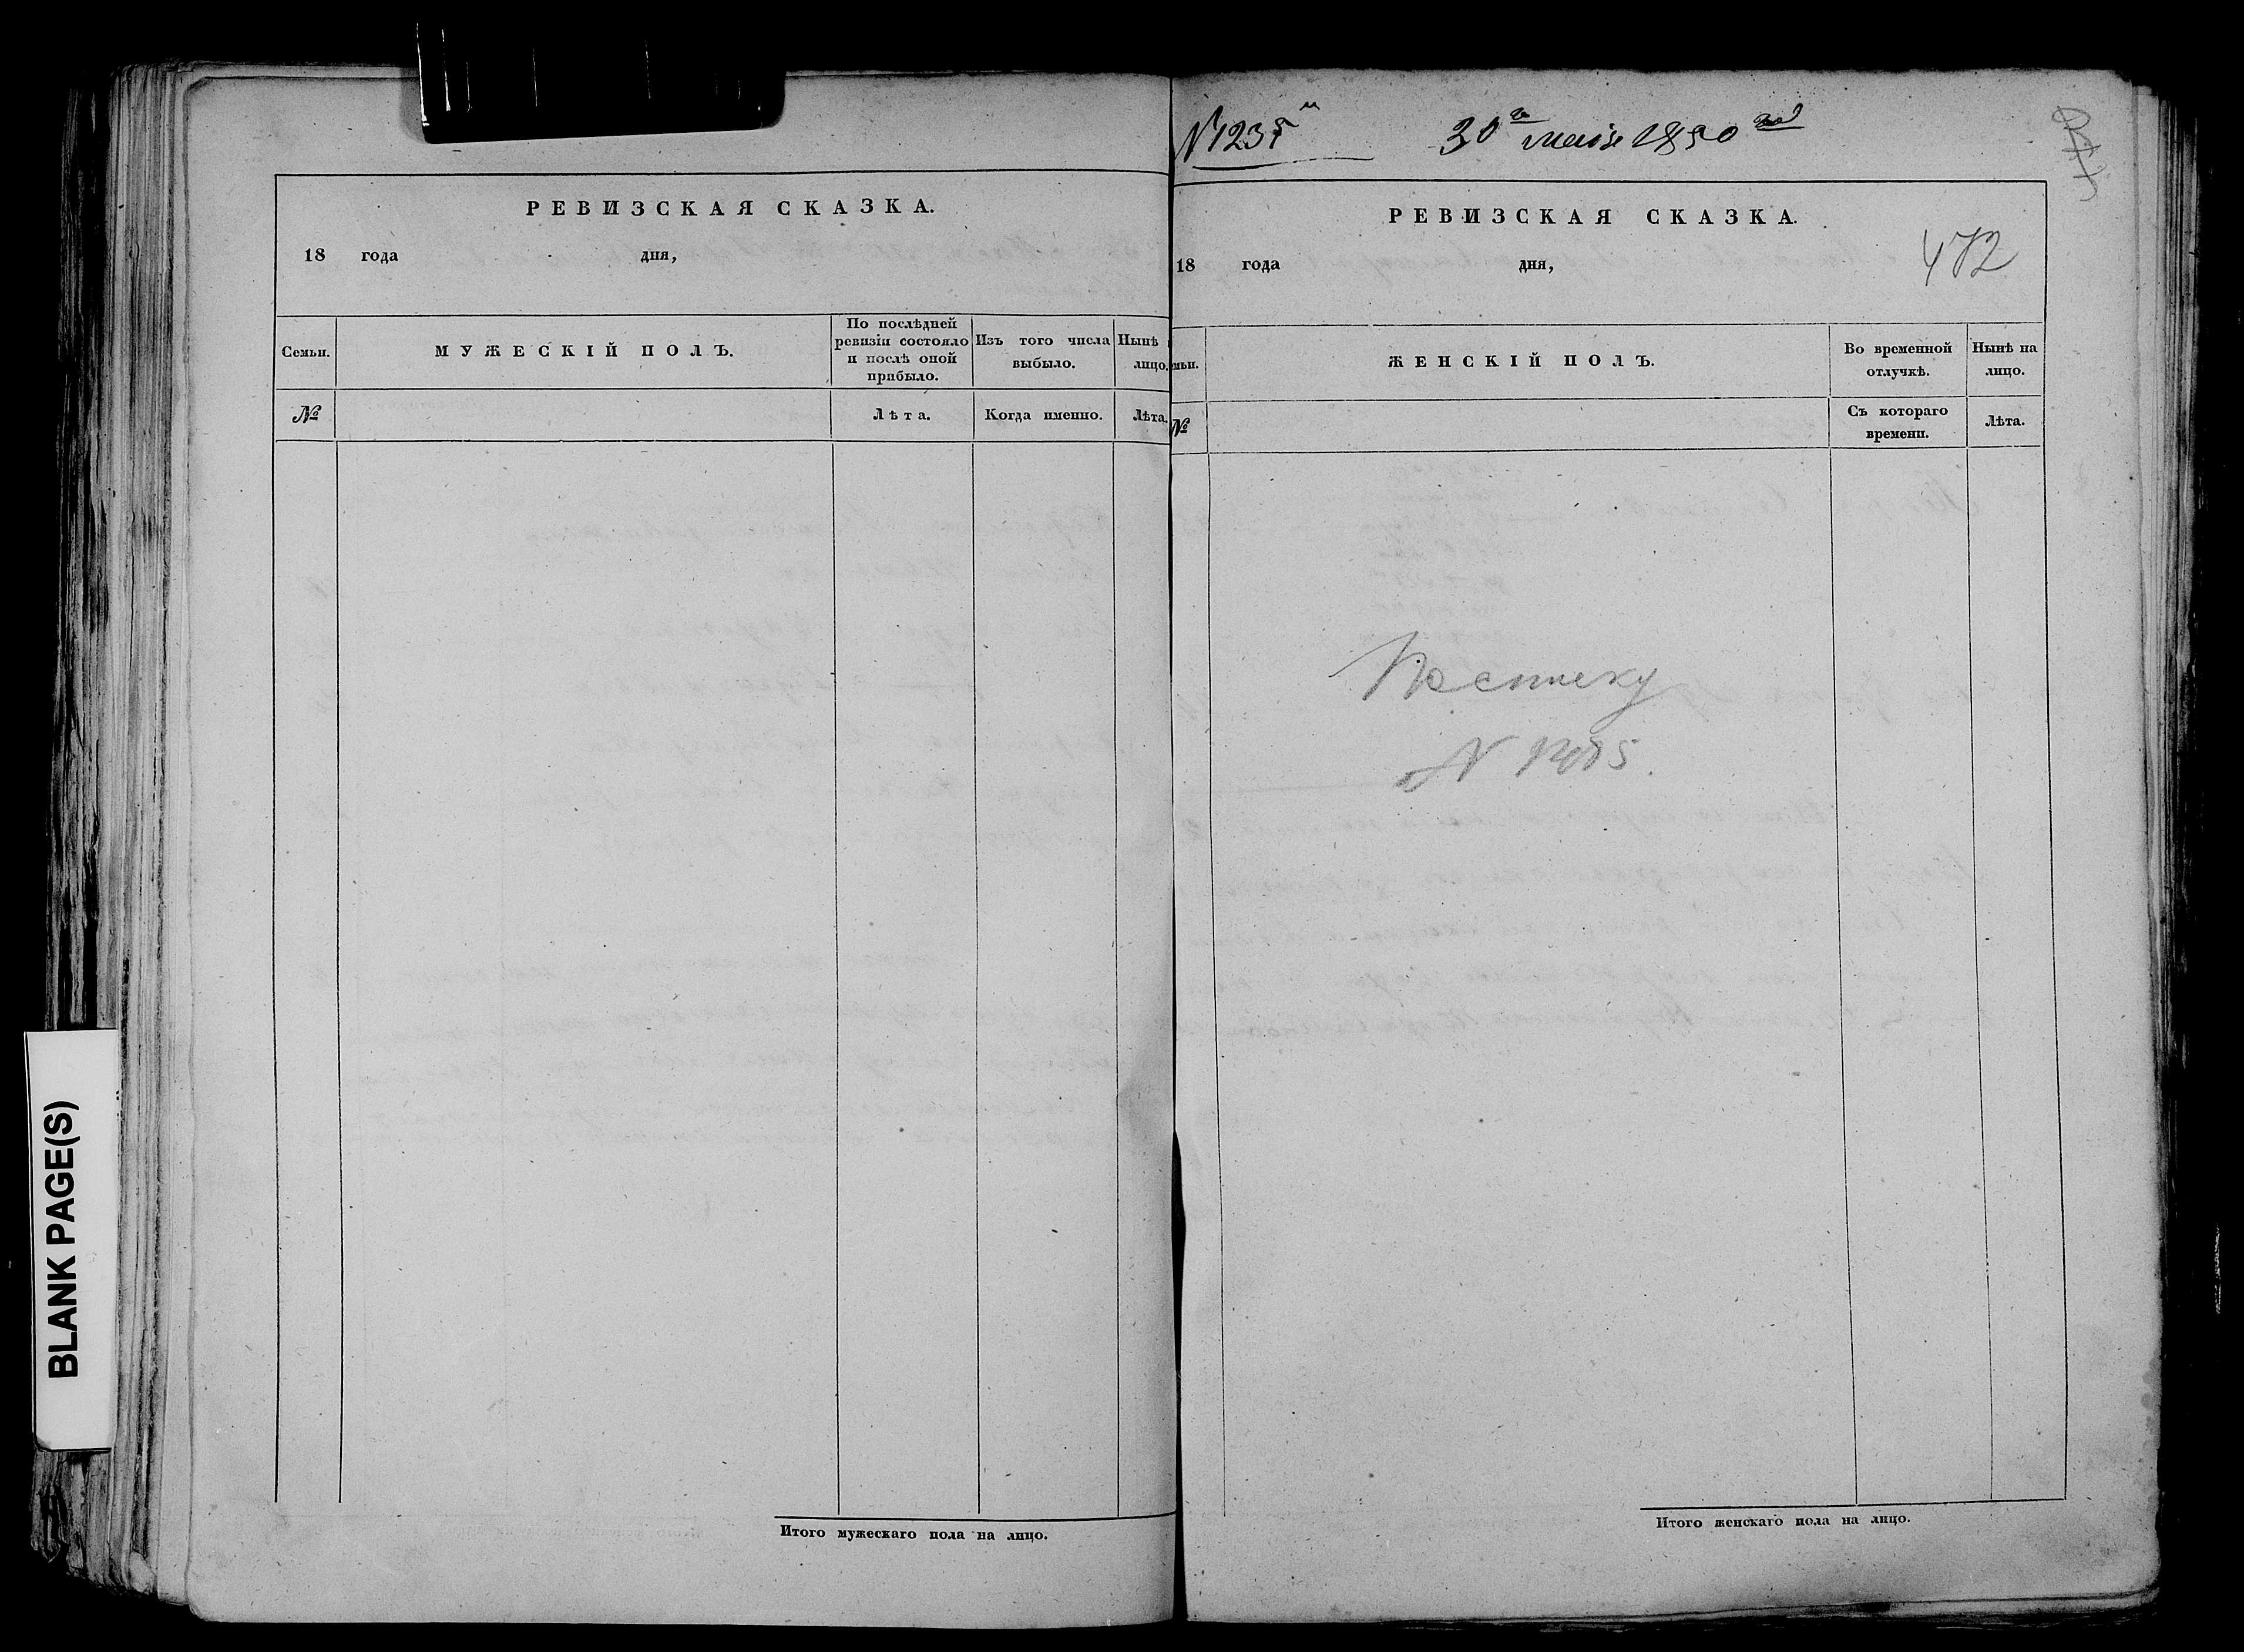 РЕВИЗСКАЯ СКАЗКА.
18 года дня,
Семьи.
МУЖЕСКІЙ ПОЛЪ.
По послѣдней
ревизіи состояло
и послѣ оной
прибыло.
Изъ того числа
выбыло.
Нынѣ
лицо.
№
Лѣта.
Когда именно.
Лѣта.
Итого мужескаго пола на лицо.
30 маія 1850
РЕВИЗСКАЯ СКАЗКА.
18 года дня,
472
ЖЕНСКІЙ ПОЛЪ.
Во временной
отлучкѣ.
Нынѣ на
лицо.
№
Съ котораго
времени.
Лѣта.
По списку
Итого женскаго пола на лицо.
BLANK PAGE(S)